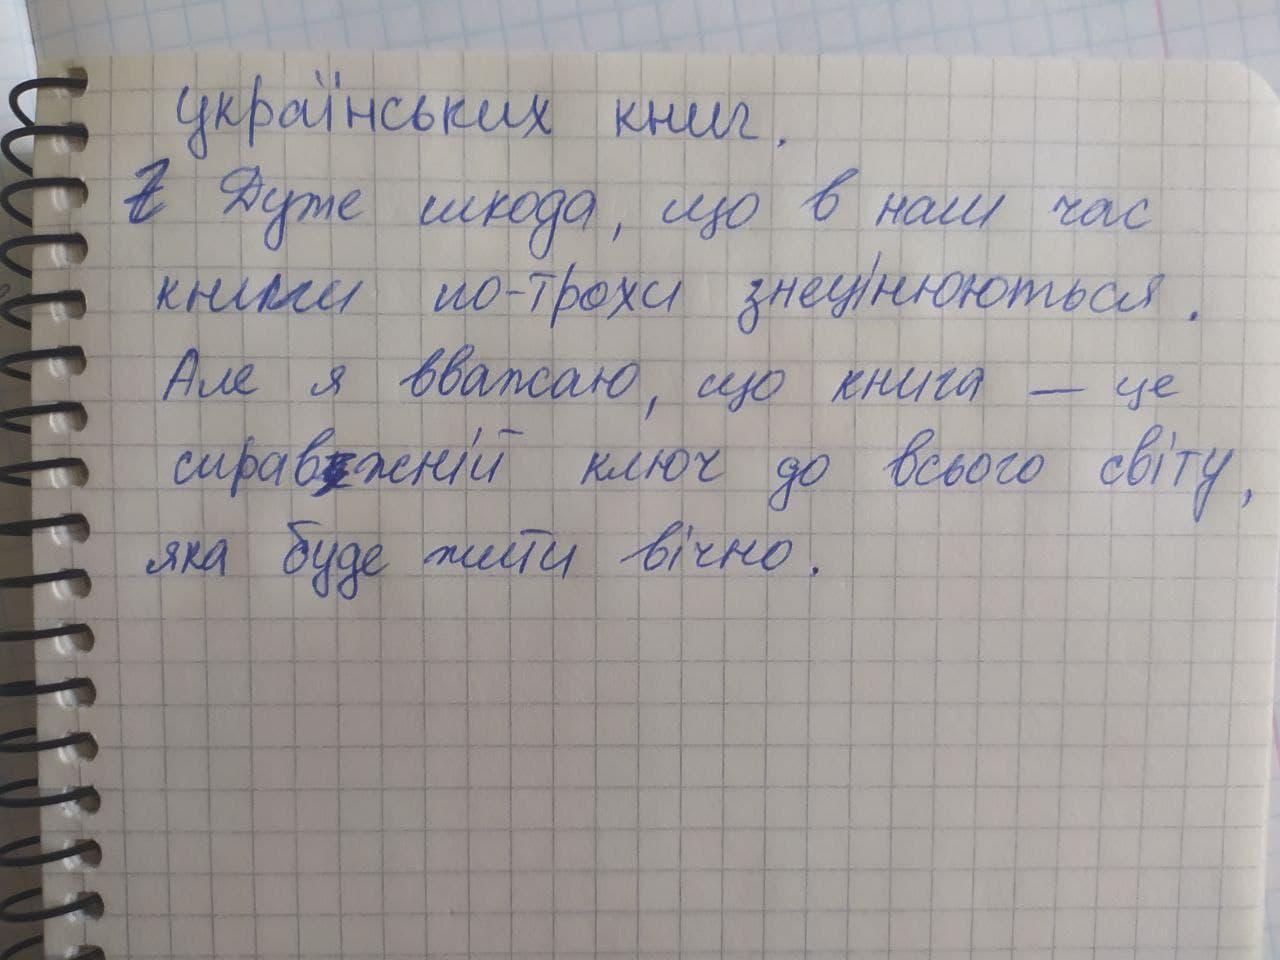 українських книг.
Дуже шкода, що в наш час
книги по-трохи знецінюються.
Але я вважаю, що книга — це
справжній ключ до всього світу,
яка буде жити вічно.